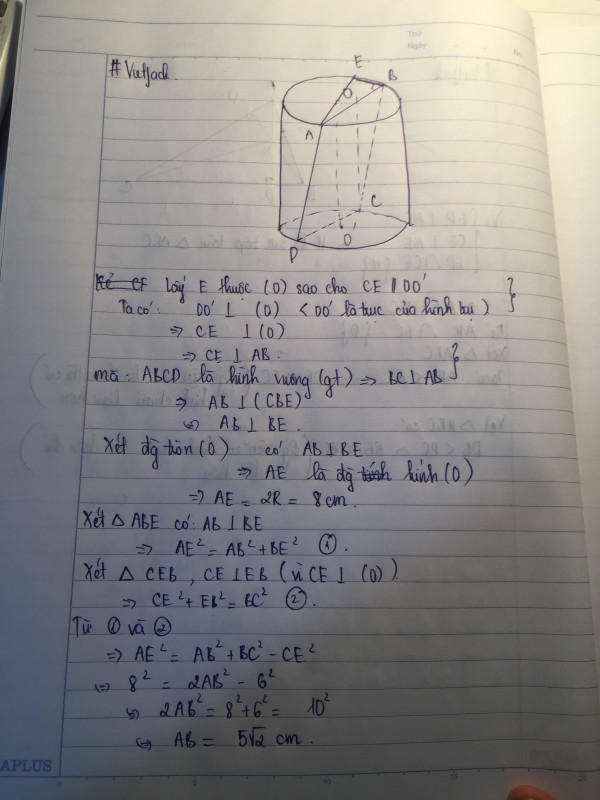 Thứ
Ngày
No
# VietJack.
E
B
O
A
C
O'
D
Kẻ CE Lấy E thuộc (O) sao cho CE // OO'
Ta có: OO' ⊥ (O) < OO' là trục của hình trụ)
⇒ CE ⊥ (O)
⇒ CE ⊥ AB.
mà: ABCD là hình vuông (gt) ⇒ BC ⊥ AB
⇒ AB ⊥ (CBE)
⇒ AB ⊥ BE.
Xét đg tròn (O) có AB ⊥ BE
⇒ AE là đg kính (O)
⇒ AE = 2R = 8 cm.
Xét △ ABE có: AB ⊥ BE
⇒ AE² = AB² + BE² ①.
Xét △ CEB, CE ⊥ EB (vì CE ⊥ (O))
⇒ CE² + EB² = BC² ②.
Từ ① và ②
⇒ AE² = AB² + BC² - CE²
⇔ 8² = 2AB² - 6²
⇔ 2AB² = 8² + 6² = 10²
⇔ AB = 5√2 cm.
APLUS